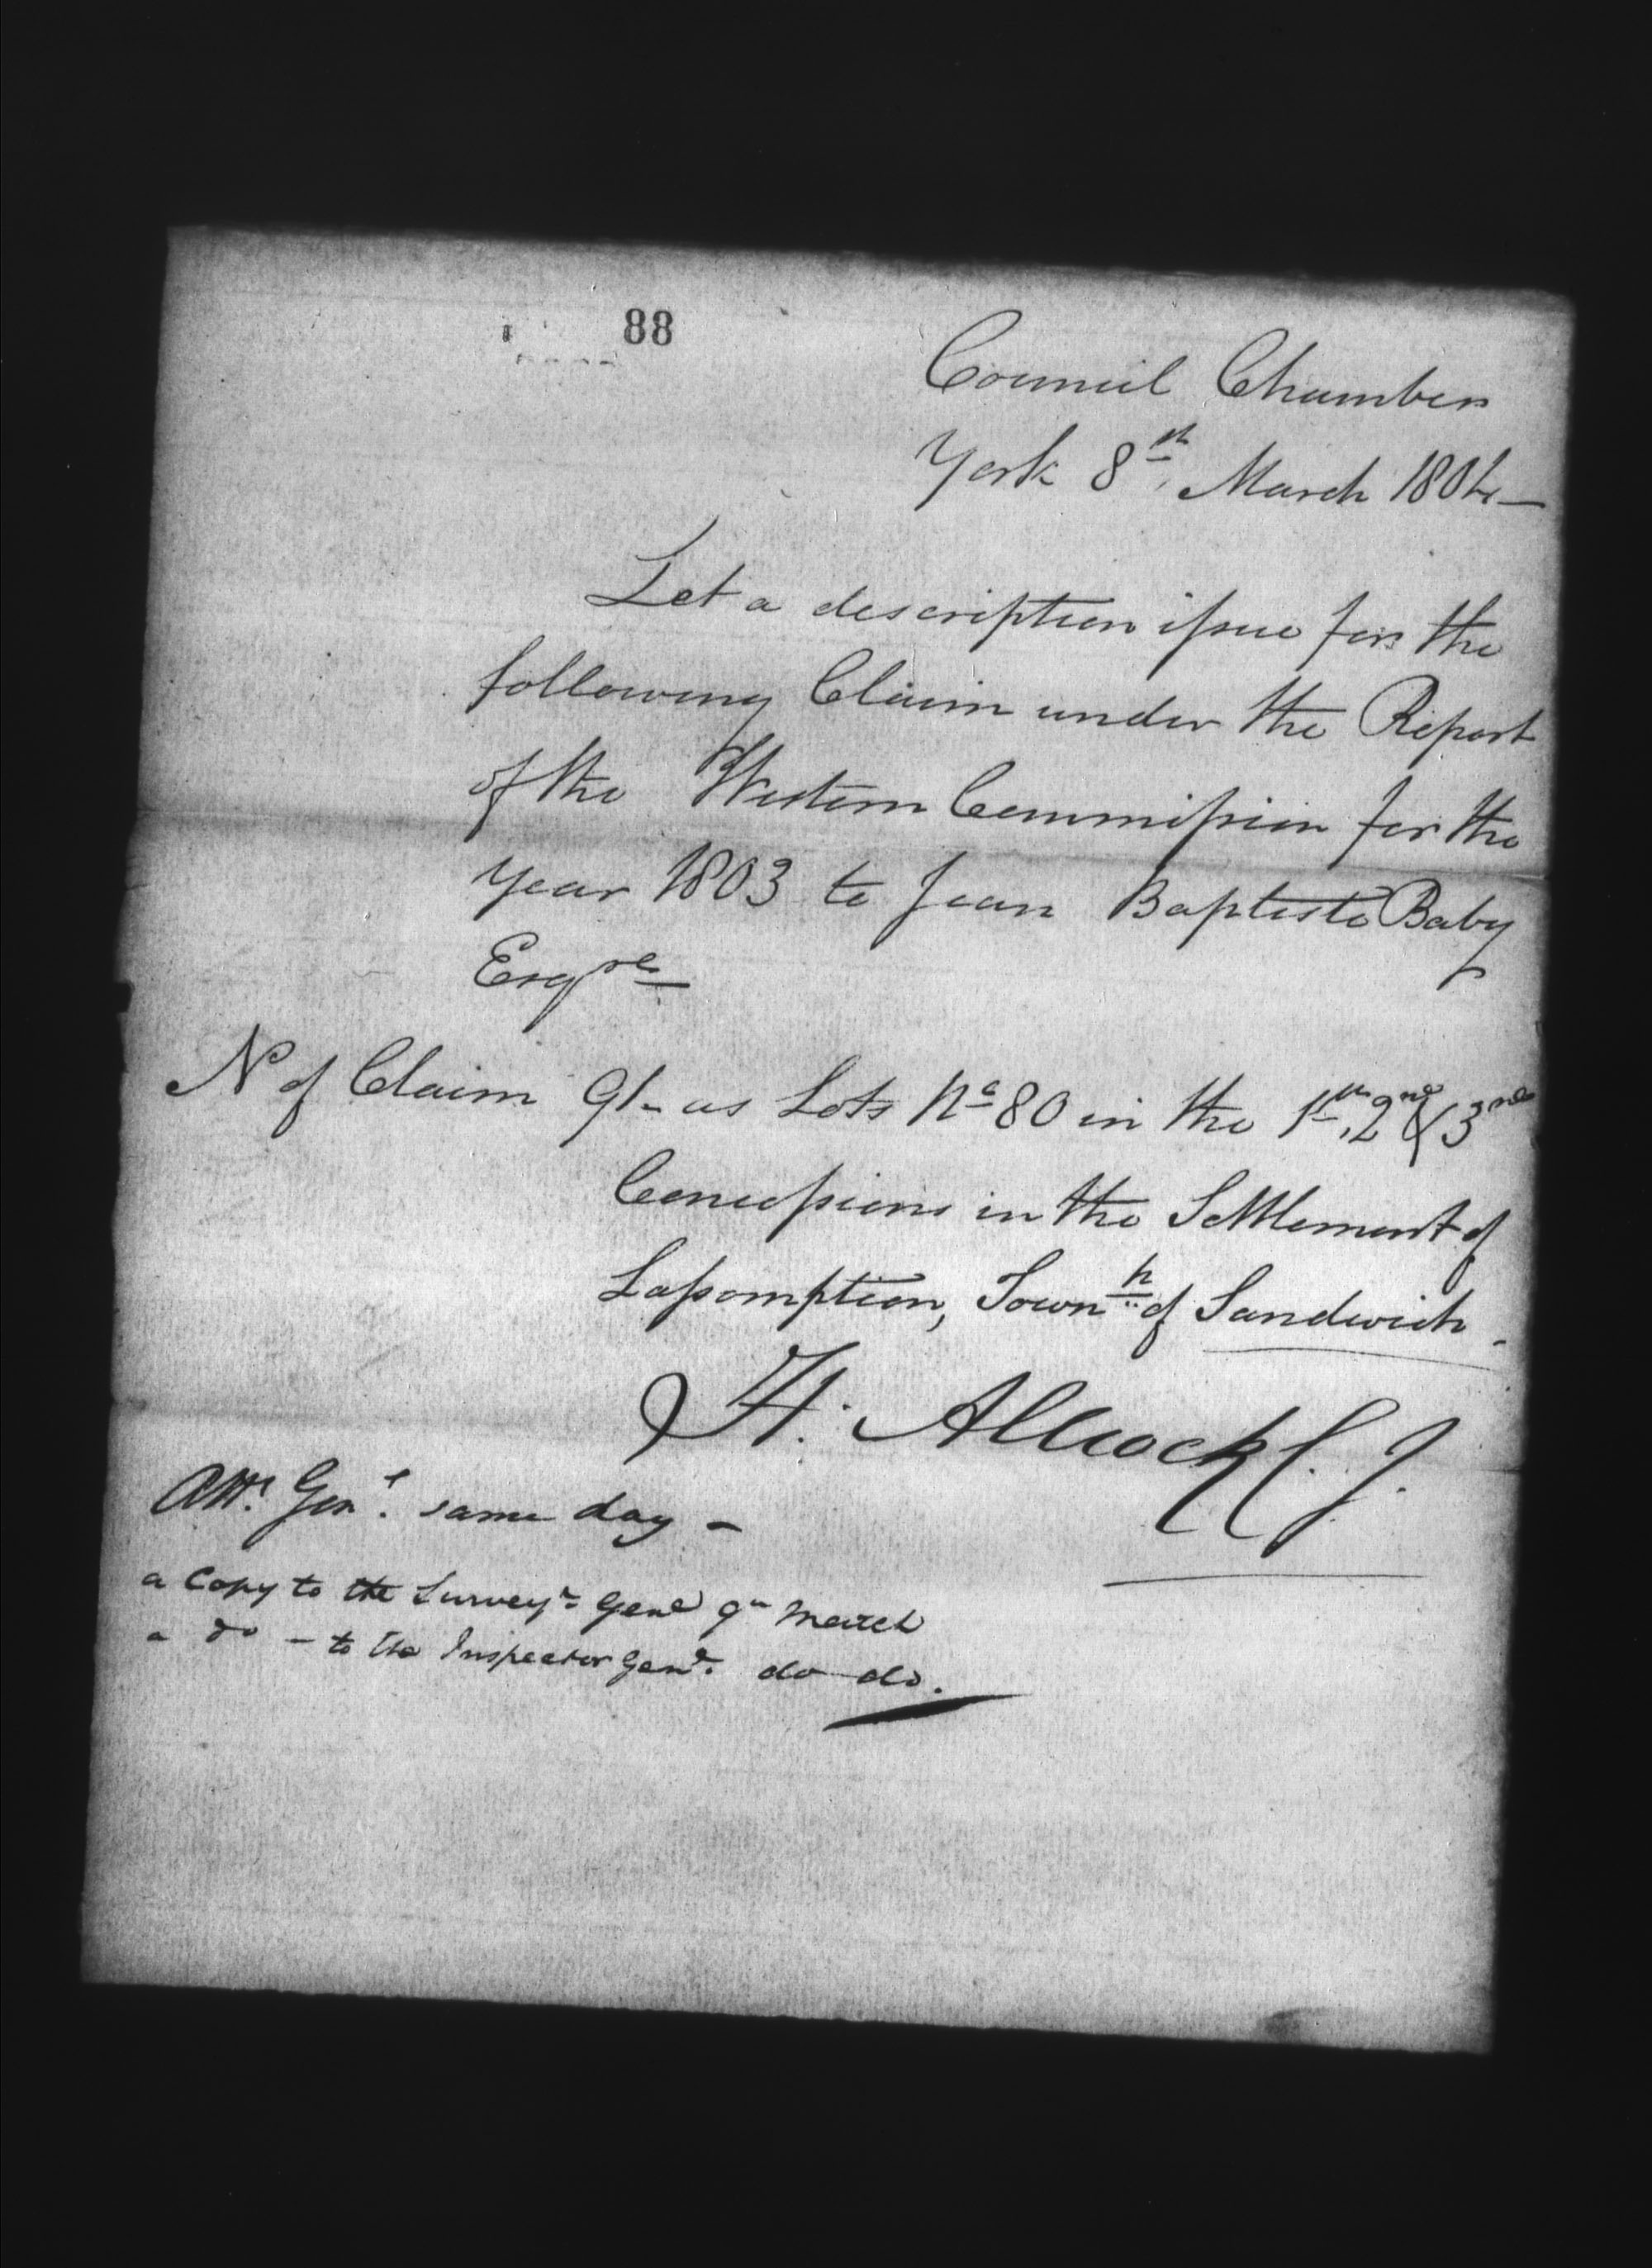 88
Council Chamber
York 8th March 1804—
Let a description issue for the
following Claim under the Report
of the Western Commission for the
year 1803 to Jean Baptiste Baby
Esqre
No of Claim 91— as Lots No 80 in the 1st, 2nd & 3rd
Concessions in the Settlement of
Lassomption, Townh of Sandwich—
H. Allcock C.J.
Atty Genl. same day —
a Copy to the Surveyr Genl 9th March
a do — to the Inspector Genl. do do.